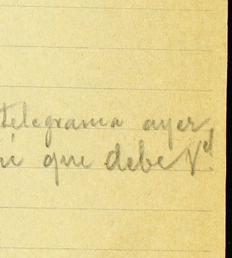 telegrama ayer,
que debe Vd.